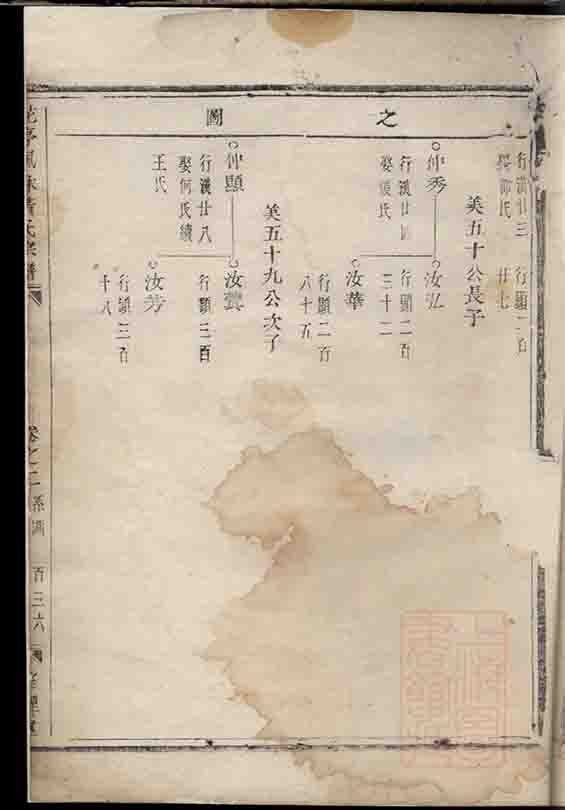 之
圖
行漢廿三
娶 氏
行顯二百
廿七
美五十公長子
仲秀
行漢廿四
娶 氏
汝弘
行顯二百
三十二
汝華
行顯二百
八十五
美五十九公次子
仲顯
行漢廿八
娶何氏續
王氏
汝雲
行顯三百
汝芳
行顯三百
十八
黃氏宗譜
卷之二
系圖
百三六